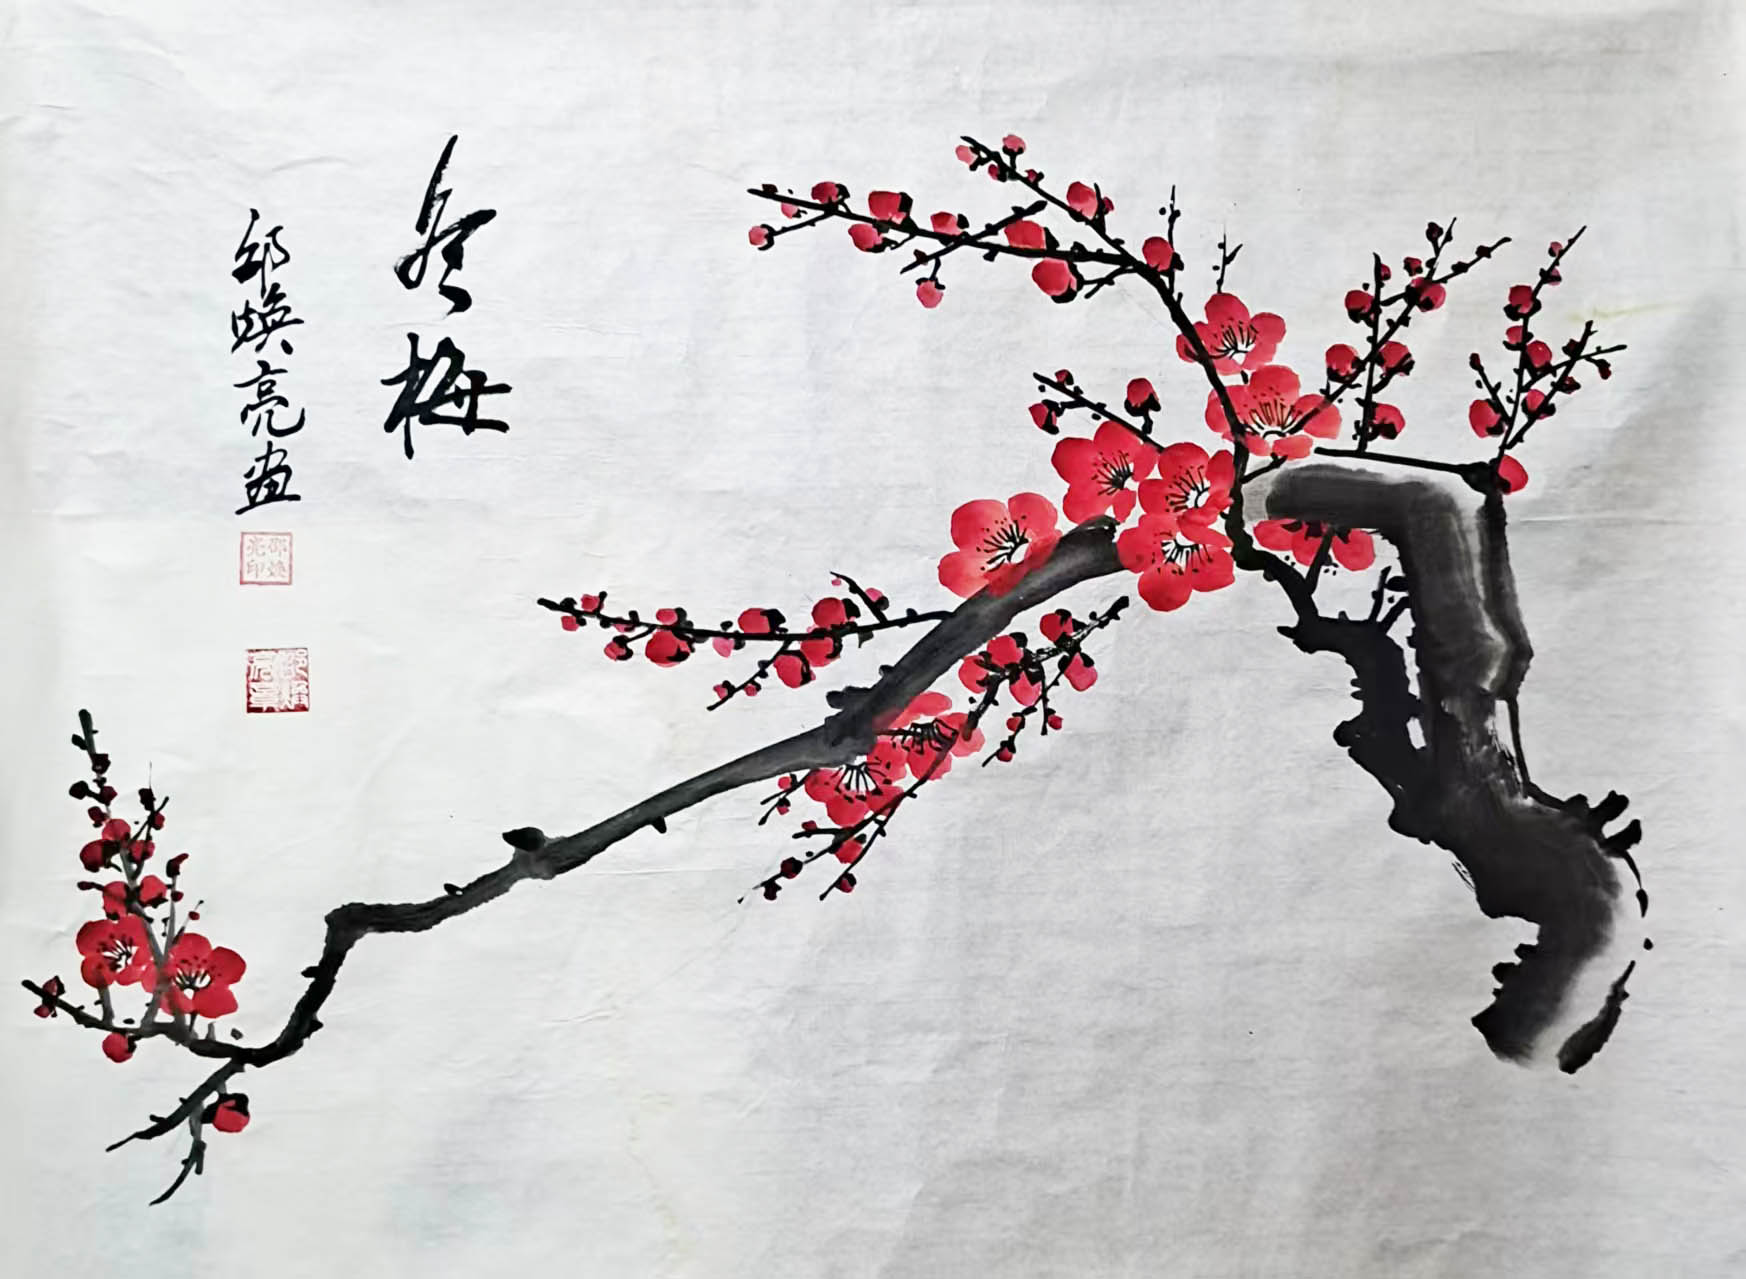 冬梅
邵焕亮画
邵焕
亮印